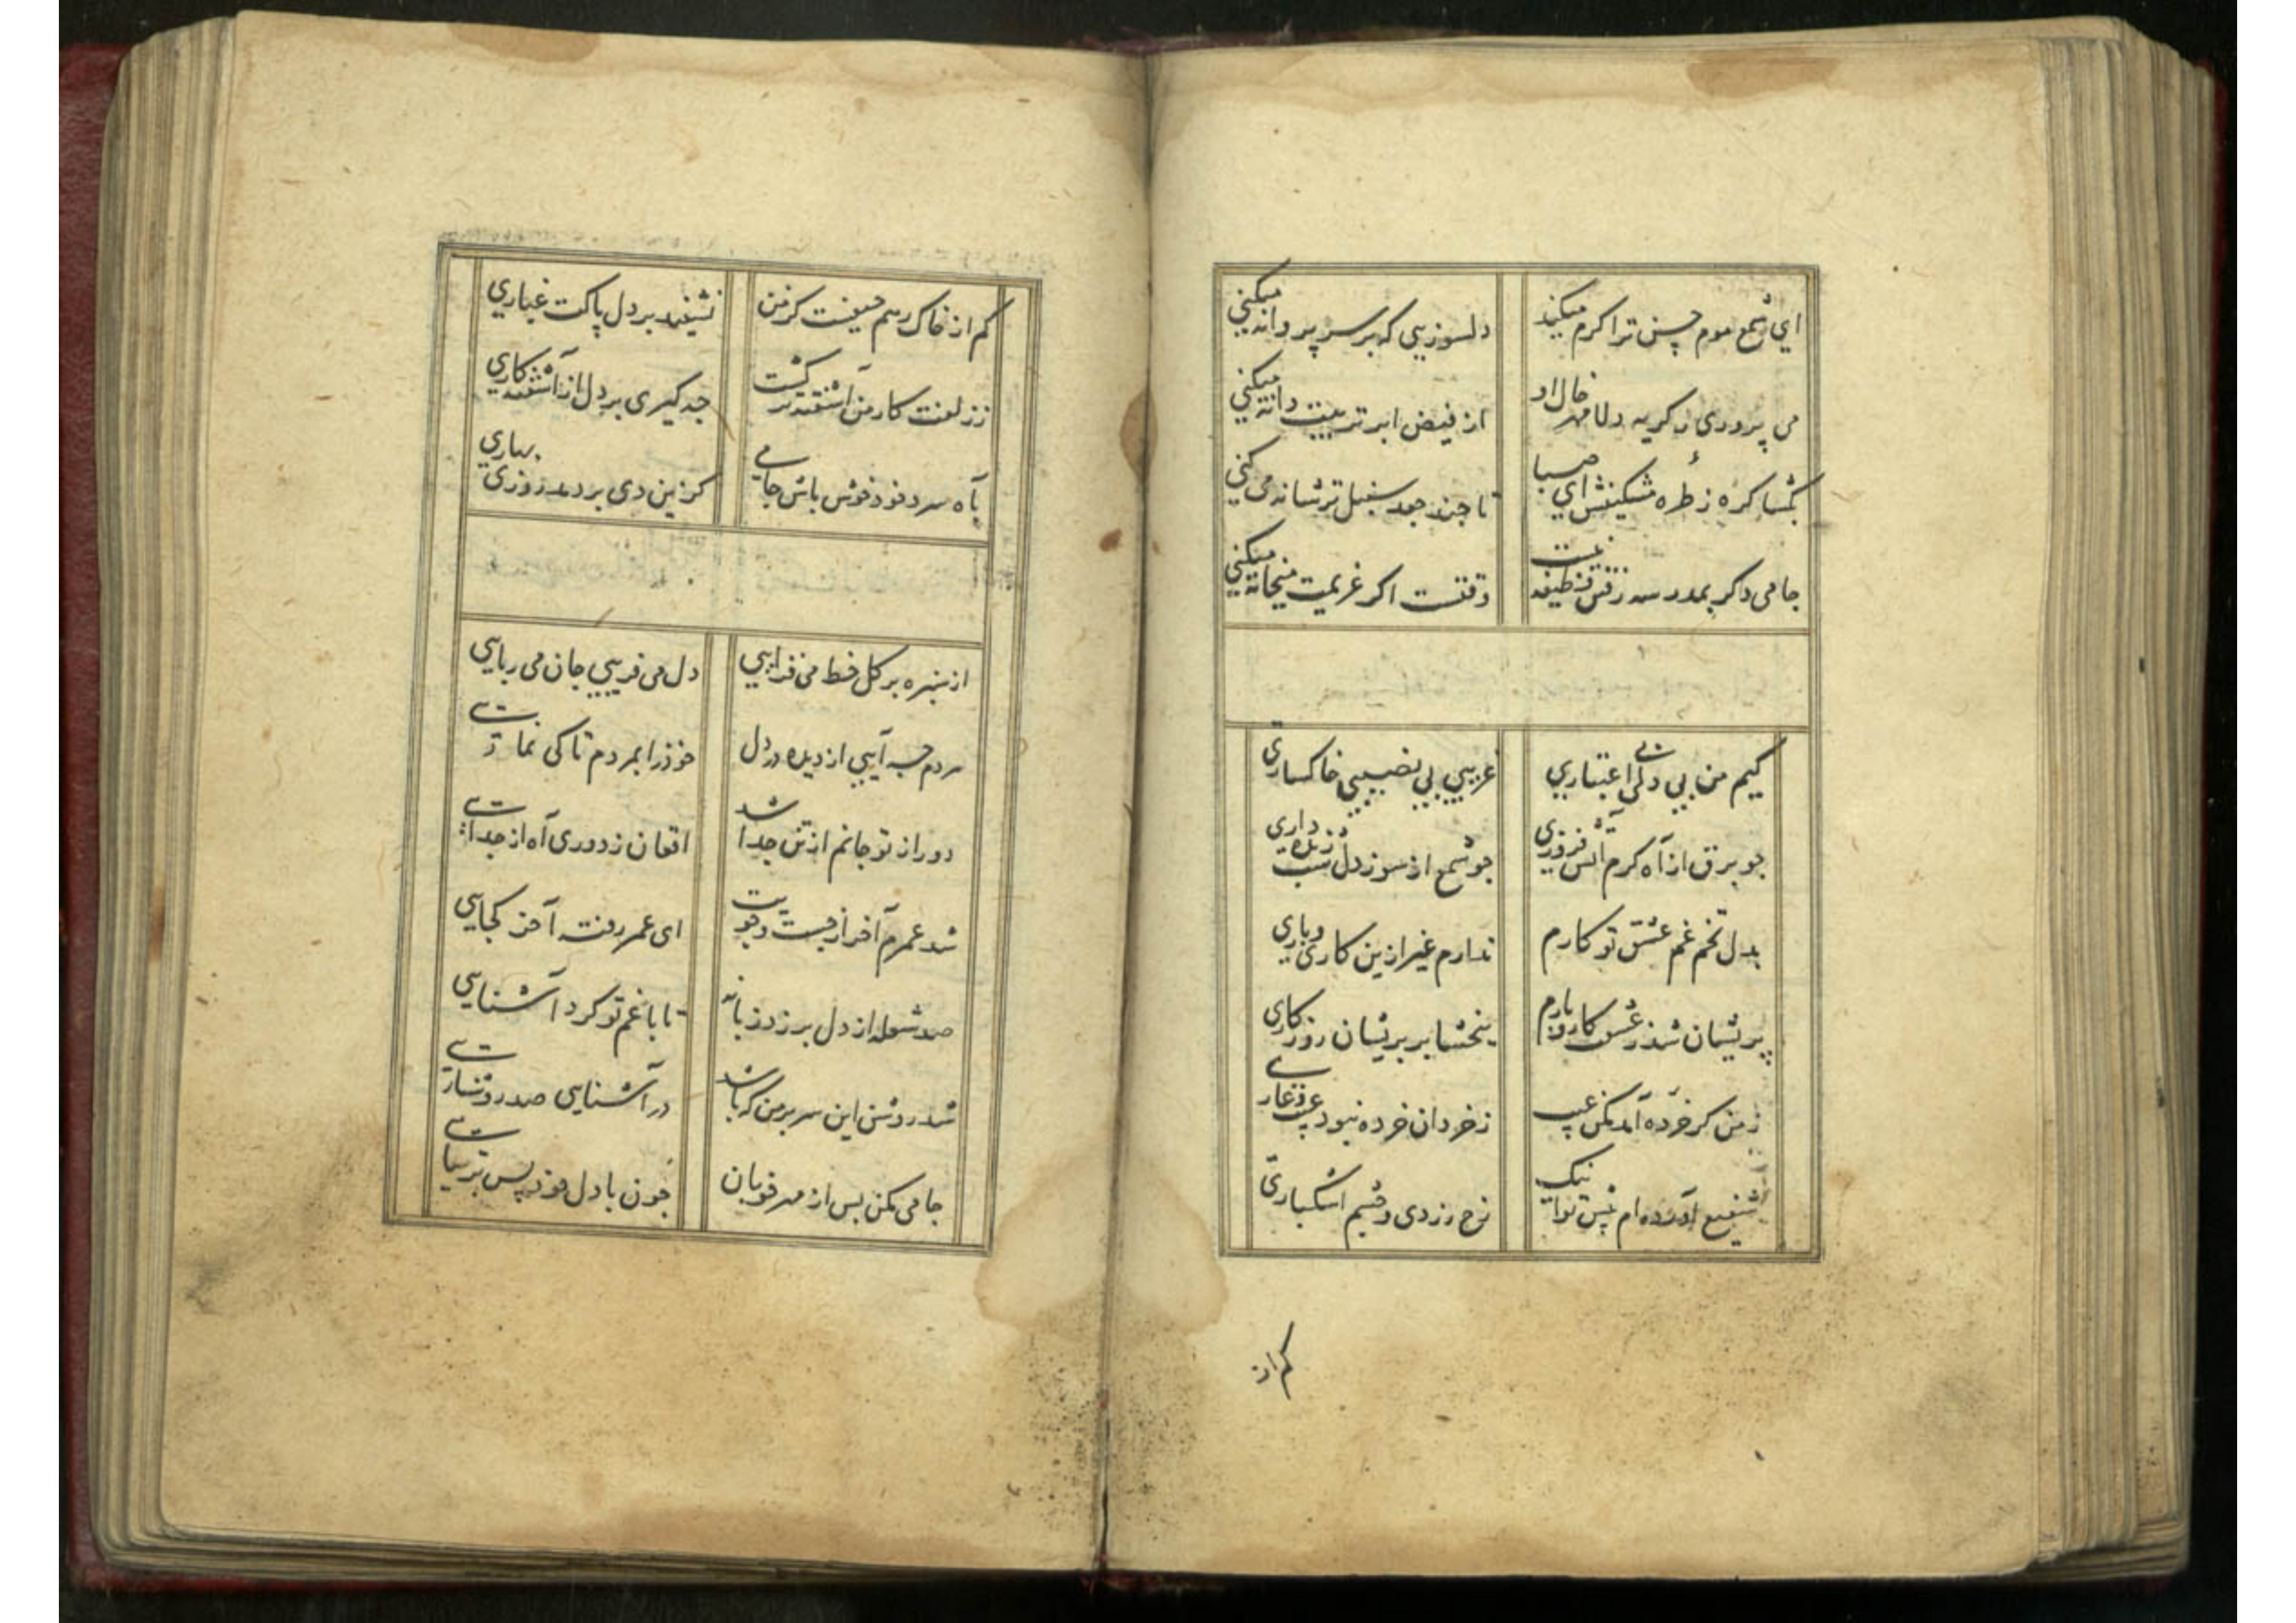 ای شمع موم چینی ترا کرم میکند دلسوزیی که بر سر پروانه میکنی
می پروری ز کریه دلا مهر خال او از فیض ابر تربیت دانه میکنی
بکشا کره ز طره مشکینش ای صبا تا چند جعد سنبل تر شانه می کنی
جامی دکر بمدرسه رفتن وظیفه نیست وقتست اکر عزیمت میخانه میکنی
کیم من بی دلی بی اعتباری غریبی بی نصیبی خاکساری
چو برق از آه کرم آتش فروزی چو شمع از سوز دل شب زنده داری
بدل تخم غم عشق تو کارم ندارم غیر ازین کاری و باری
پریشان شد ز عشقت کار و بارم ببخشا بر پریشان روزکاری
ز من کر خرده آمد مکن عیب ز خردان خرده نبود عیب و عاری
شفیع آورده ام پیش تو اینک رخ زردی و چشم اشکباری
کم از
کم از خاک رهم حیفست کز من نشیند بر دل پاکت غباری
ز زلفت کار من آشفته تر کشت چه کیری بر دل از آشفته کاری
بآه سرد خود خوش باش جامی کزین دی بر دمد روزی بهاری
از سبزه بر کل خط می فزایی دل می فریبی جان می ربایی
مردم چه آیی از دیده در دل خود را بمردم تا کی نمایی
دور از تو جانم از تن جدا شد افغان ز دوری آه از جدایی
شد عمرم آخر از جست و جویت ای عمر رفته آخر کجایی
صد شعله از دل بر زد زبانه تا با غم تو کرد آشنایی
شد روشن این سر بر من که باشد در آشنایی صد روشنایی
جامی مکن بس از مهر خوبان چون با دل خود پس بر نیایی